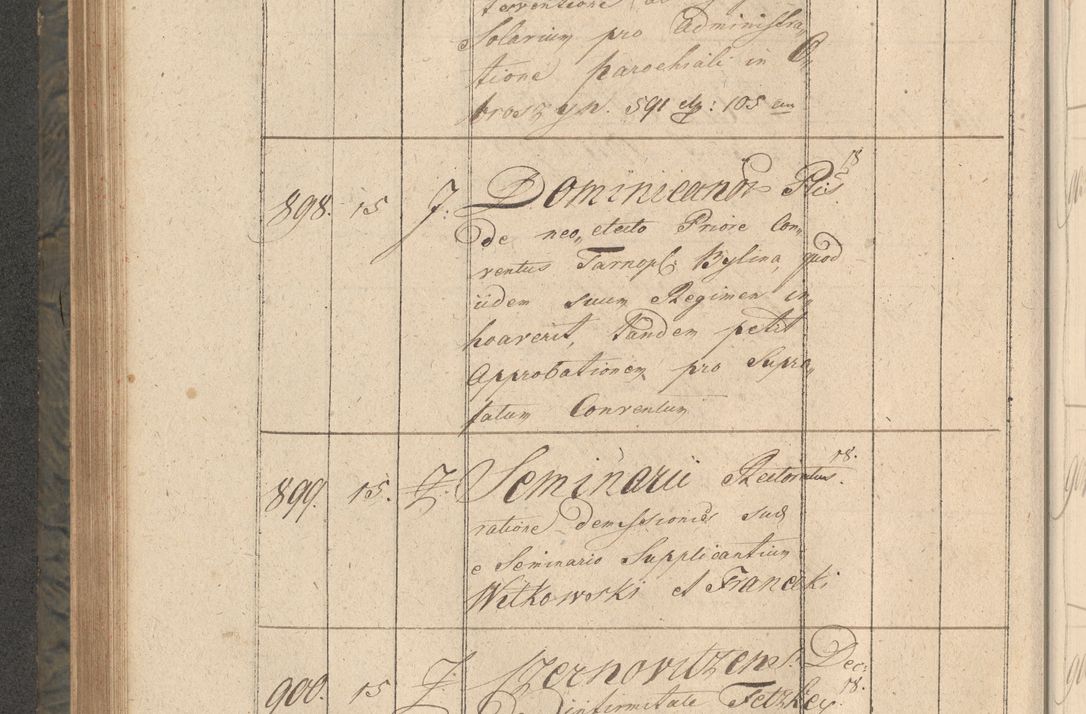 Solarium pro Administra„
tione parochiali in O„
broszyn. 591 215: 105 em
898. 15 J: Dominicanor Plis 18
de neo„electo Priore Con„
ventus Tarnopl: Bylina, quod
iidem suum Regimen in„
hoaverit, Tandem petit
Approbationem pro Supra„
fatum Conventum
899. 15. J: Seminarii Rectoratus 18.
ratione demissionis sua
e Seminario Supplicantium
Witkowski et Franciski
900. 15 J: Czernovitzens: Dec: 18.
infirmitate Fetzkey